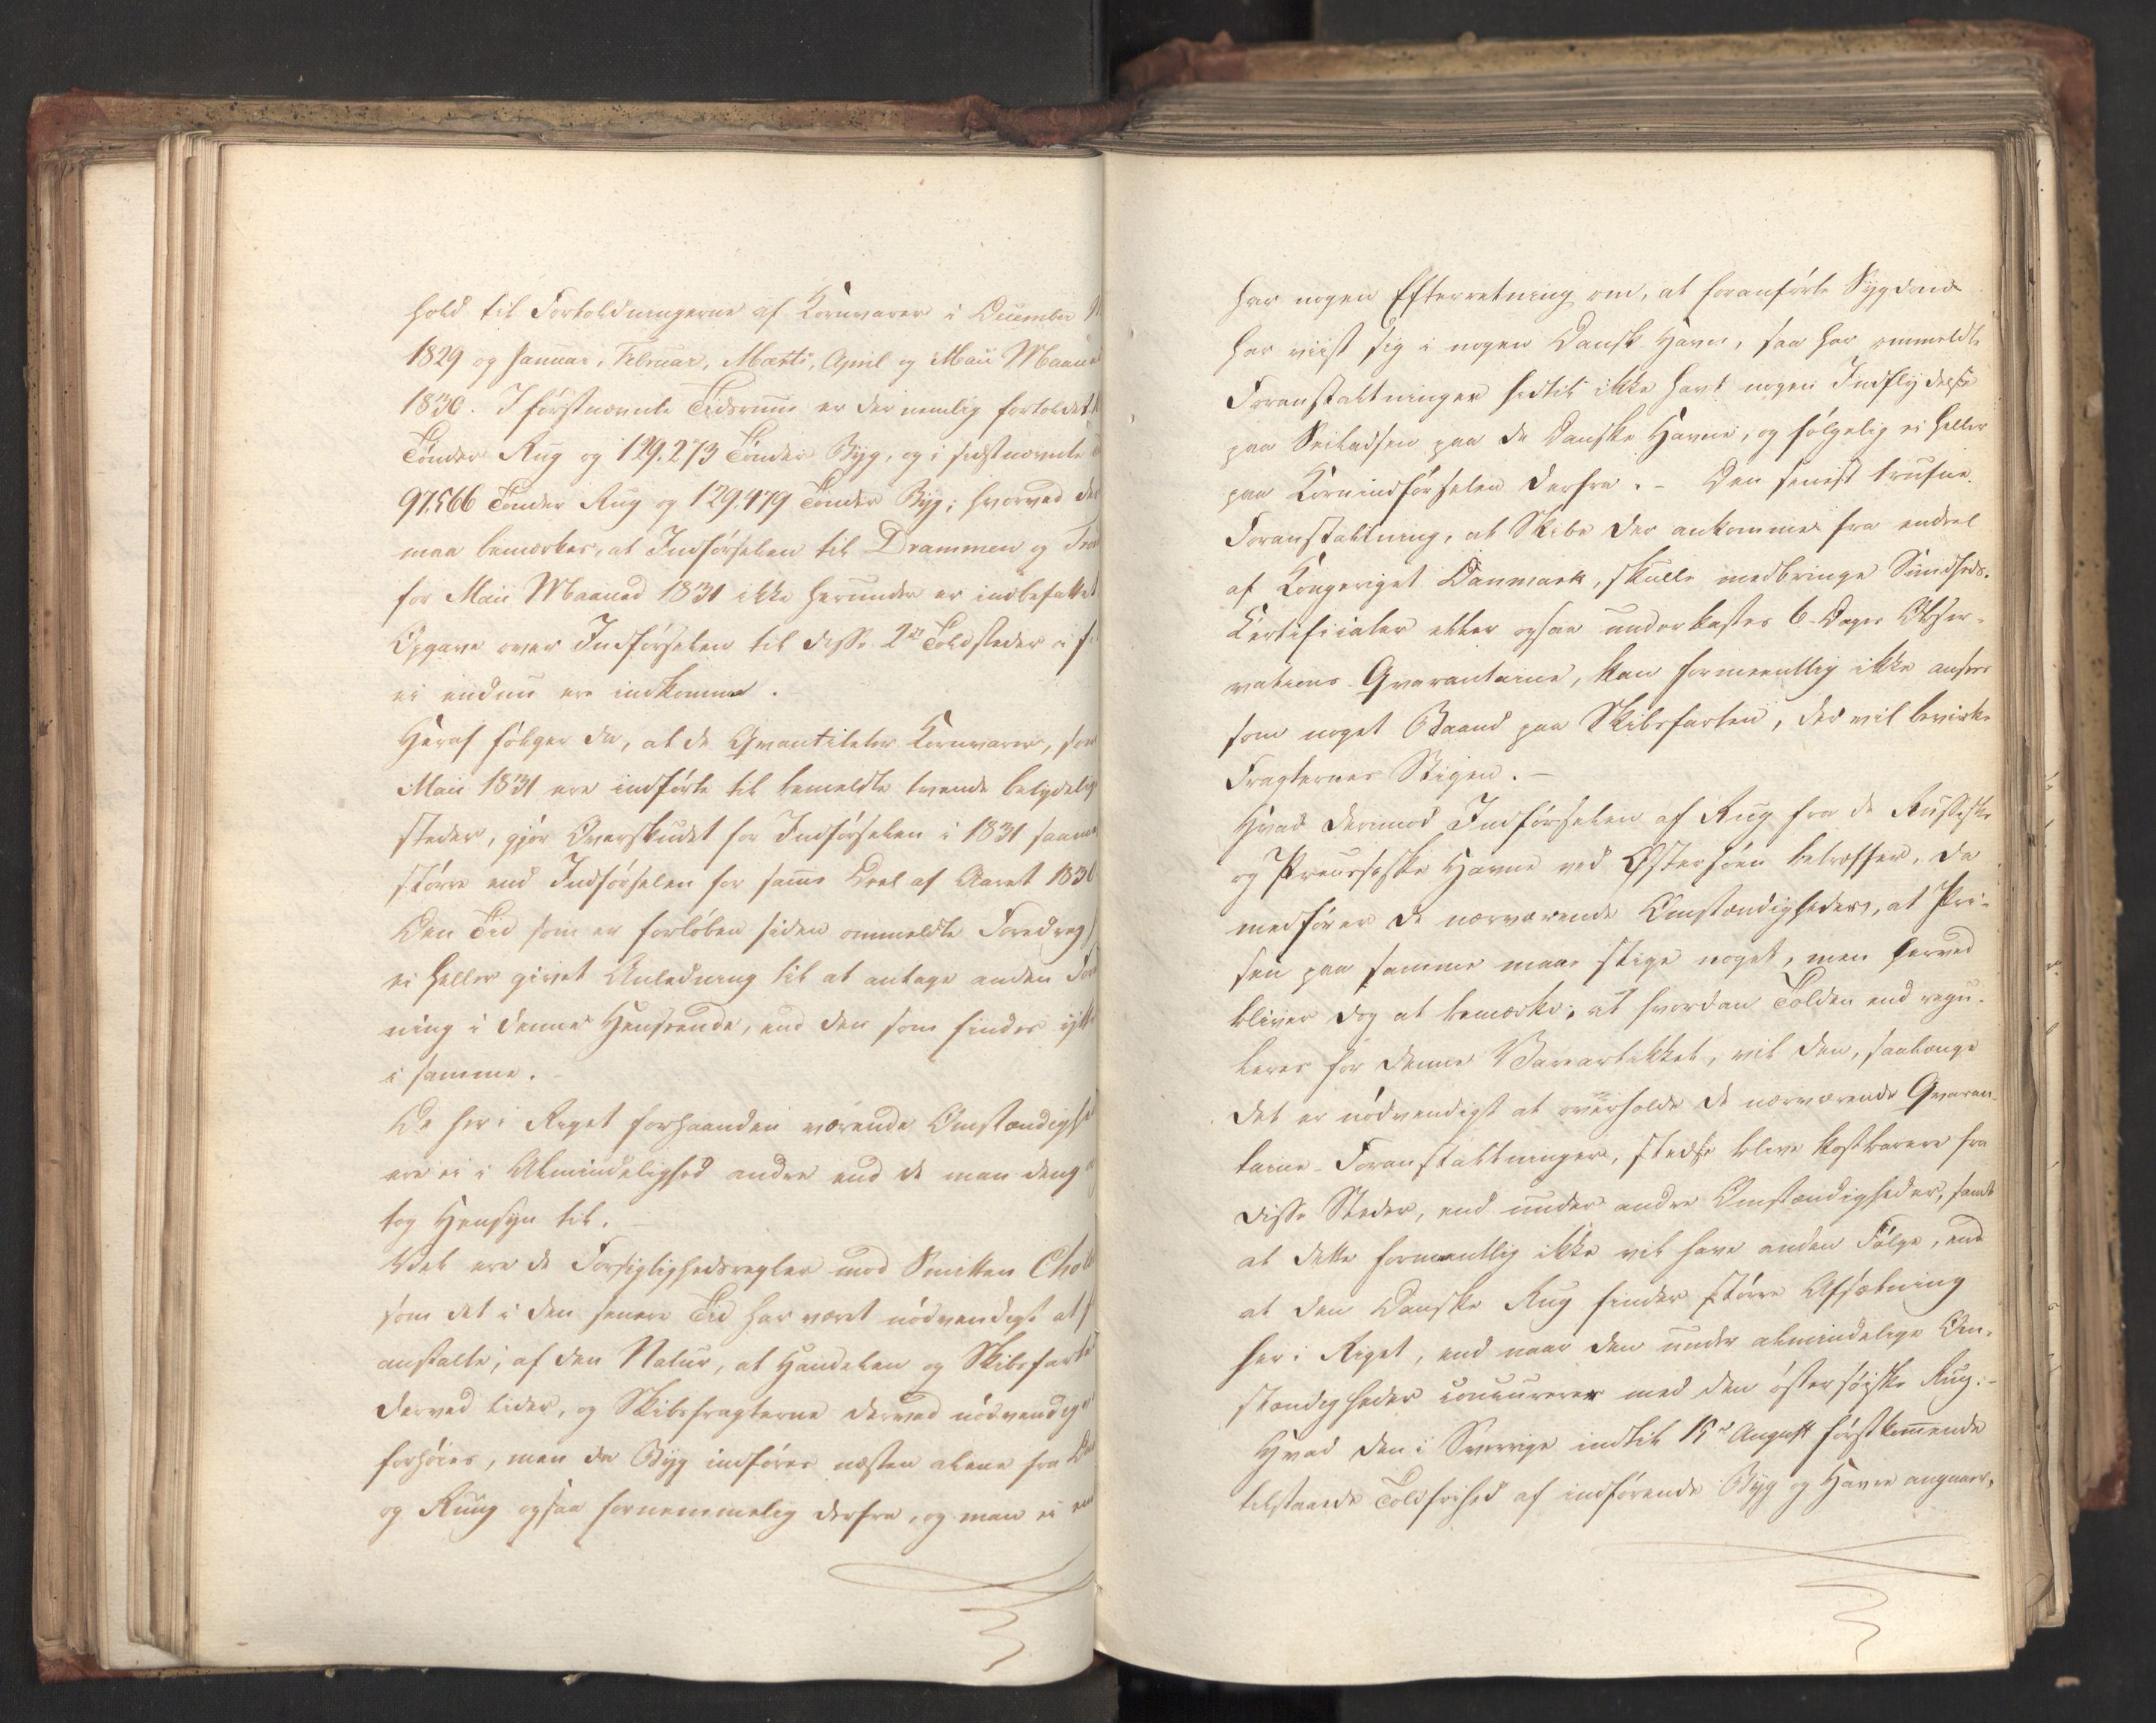 hold til Fortoldningerne af Kornvarer i December M
1829 og Januar, Februar, Marti, April og Maii Maane
1830. I förstnævnte Tidsrum er der nemlig fortoldet
Tönder Rug og 129.273 Tönder Byg, og i sidstnævnte T
97.566 Tönder Rug og 129.479 Tönder Byg; hvorved det
maa bemærkes, at Indförselen til Drammen og
for Maii Maaned 1831 ikke herunder er indbefattet
Opgave over Indförselen til disse 2de Toldsteder i
ei endnu ere indkomne.
Heraf fölger da, at de Qvantiteter Kornvarer, som
Maii 1831 ere indförte til bemeldte tvende betydelig
steder, gjör Overskudet for Indförselen i 1831 saame
större end Indförselen for samme Deel af Aaret 1830
Den Tid som er forlöben siden ommeldte Foredrag
ei heller givet Anledning til at antage anden For
ning i denne Henseende, end den som findes ytt
i samme.
De her i Riget forhaanden værende Omstændighed
ere ei i Almindelighed andre end de man deng
tog Hensyn til. –
Vel ere de Forsigtighedsregler mod Smitten Chol
som det i den senere Tid har været nödvendigt at
anstalte, af den Natur, at Handelen og Skibsfarte
derved lider, og Skibsfragterne derved nödvendig
forhöies, men da Byg indföres næsten alene fra Da
og Rug ogsaa fornemmelig derfra, og man ei end
har nogen Efterretning om, at foranförte Sygdom
har viist sig i nogen Dansk Havn, saa har ommeldte
Foranstaltninger hidtil ikke havt nogen Indflydelse
paa Seiladsen paa de Danske Havne, og fölgelig ei heller
paa Kornindförselen derfra. – Den senest trufne
Foranstaltning, at Skibe der ankommer fra endeel
af Kongeriget Danmark, skulle medbringe Sundheds-
Certificater eller ogsaa underkastes 6 Dages Obser-
vations Qvarantaine, kan formeentlig ikke ansees
som noget Baand paa Skibsfarten, der vil bevirke
Fragternes Stigen. –
Hvad derimod Indförselen af Rug fra de Russiske
og Preussiske Havne ved Östersöen betræffer, da
medförer de nærværende Omstændigheder, at Pri-
sen paa samme maae stige noget, men herved
bliver dog at bemærke, at hvordan Tolden end regu-
leres for denne Vareartikkel, vil den, saalænge
det er nödvendigt at overholde de nærværende Qvaran-
taine-Foranstaltninger, stedse blive kostbarere fra
disse Steder, end under andre Omstændigheder, samt
at dette formeentlig ikke vil have anden Fölge, end
at den Danske Rug finder större Afsætning
her i Riget, end naar den under almindelige Om-
stændigheder concurerer med den östersöiske Rug. –
Hvad den i Sverrige indtil 15de August förstkommende
tilstaaede Toldfrihed af indförende Byg og Havre angaaer,